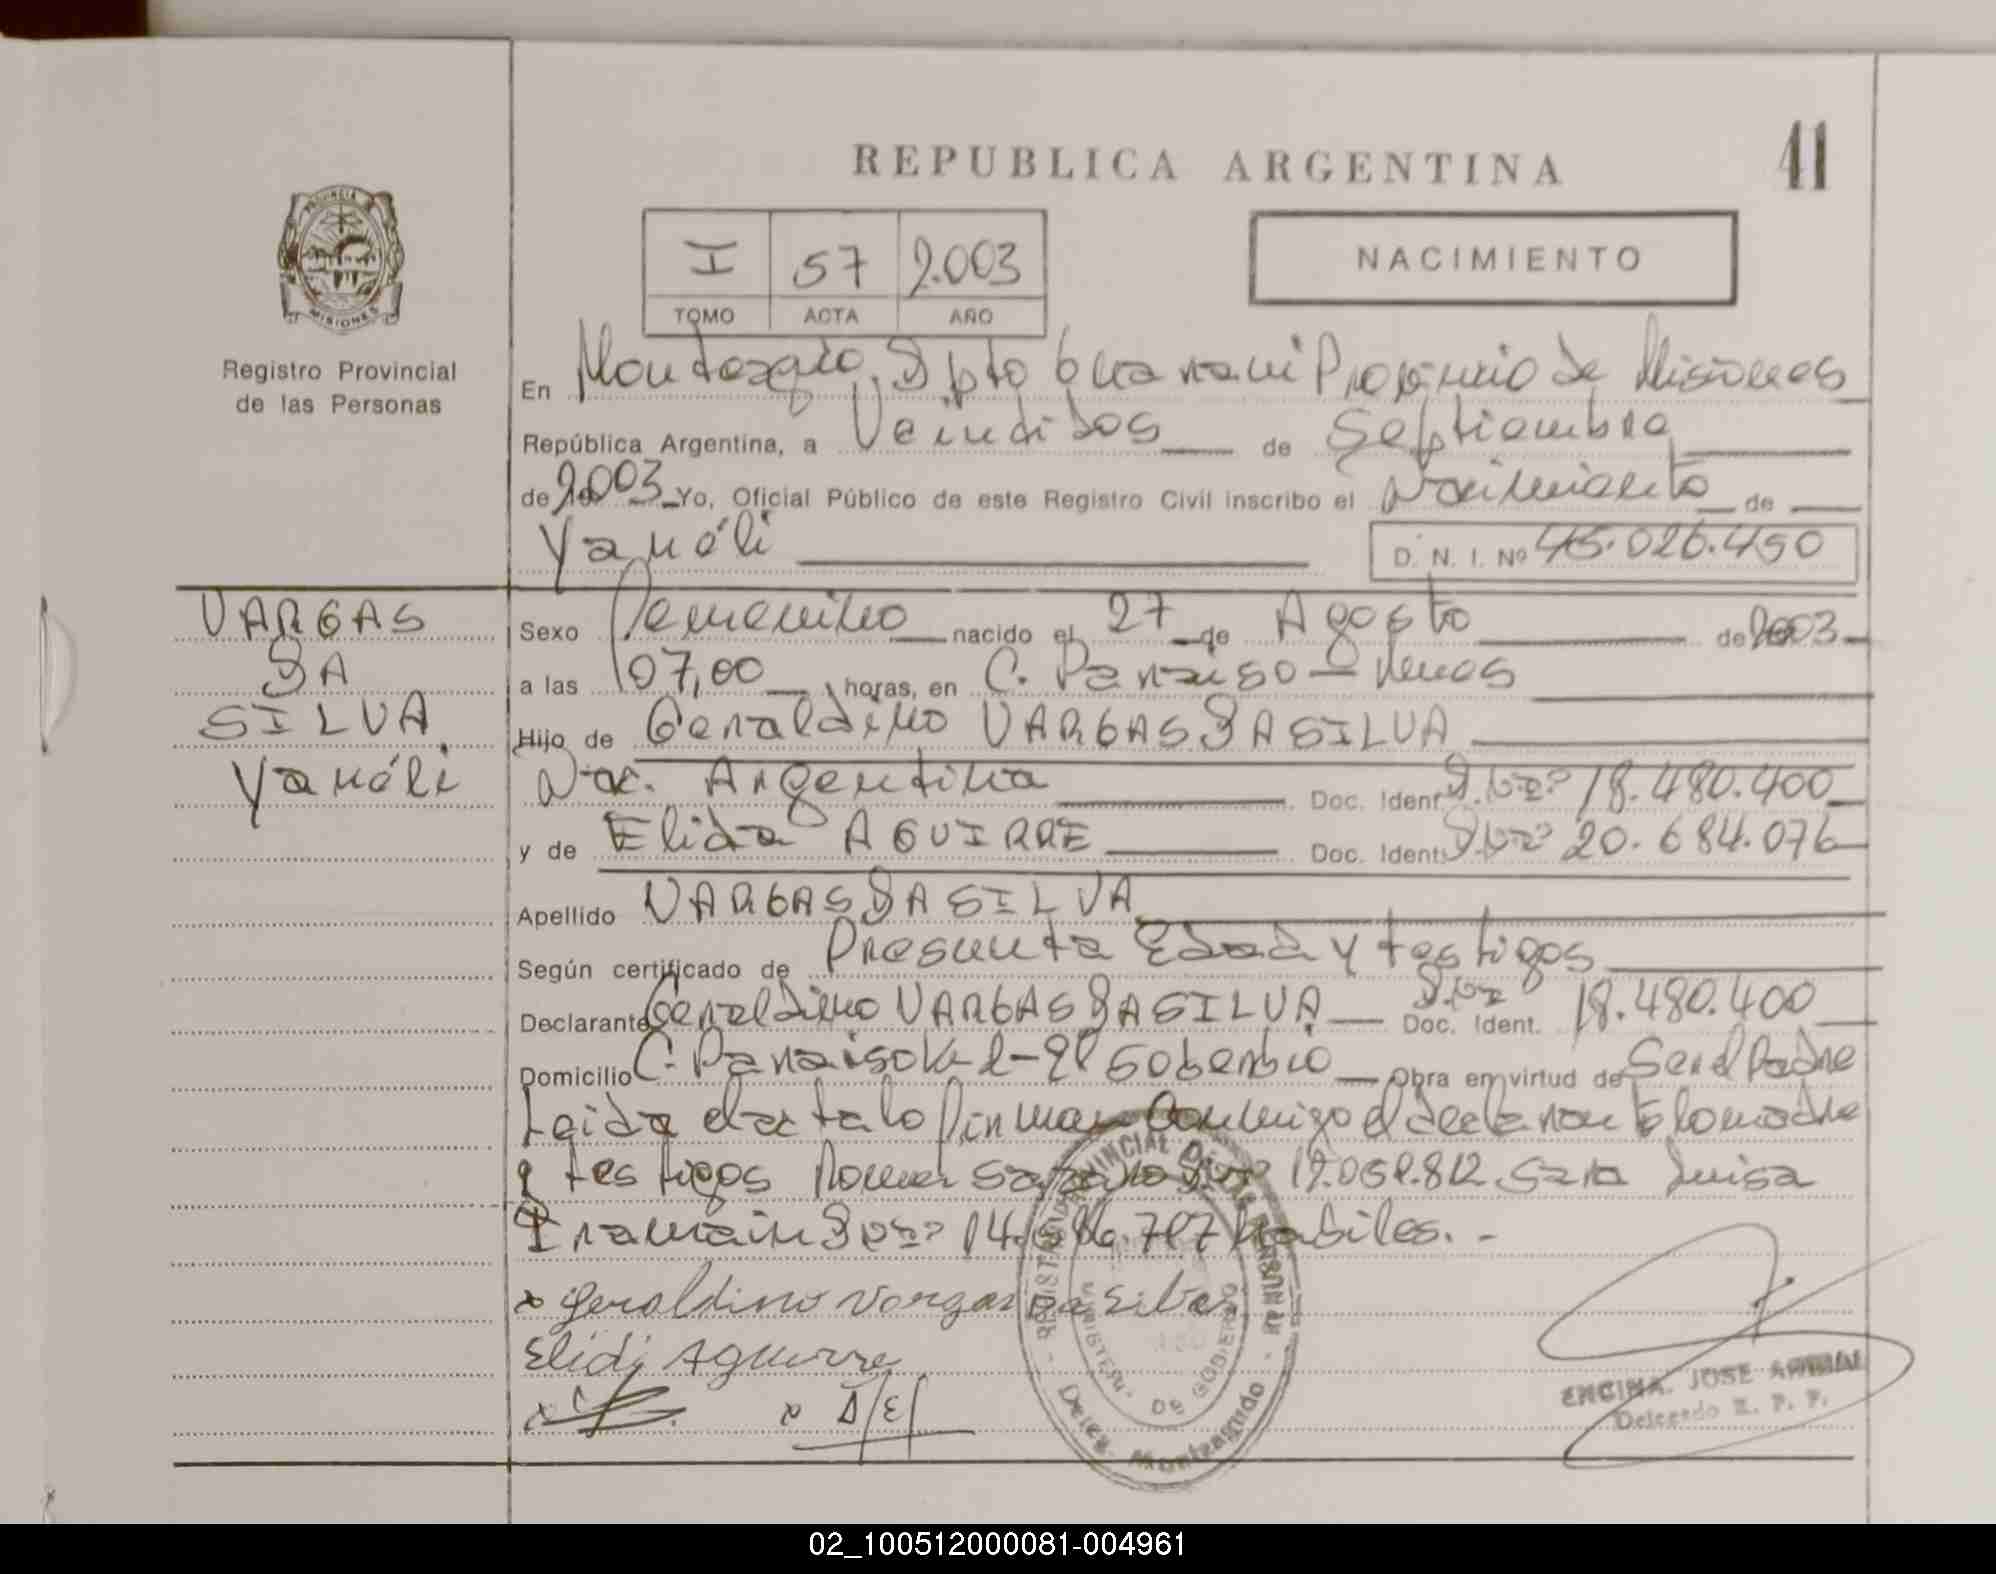 REPUBLICA ARGENTINA
41
PROVINCIA DE
MISIONES
Registro Provincial
de las Personas
I 57 2.003
TOMO ACTA AÑO
NACIMIENTO
En Monteagudo, Dpto Guarani Provincia de Misiones
República Argentina, a Veintidos de Septiembre
de 2.003 Yo, Oficial Público de este Registro Civil inscribo el Nacimiento de
Yanéli
D. N. I. Nº 45.026.450
VARGAS
DA
SILVA
Yanéli
Sexo Femenino nacido el 27 de Agosto de 2003
a las 07,00 horas, en C. Paraiso - Mnes
Hijo de Geraldino VARGAS DA SILVA
Nac. Argentina Doc. Ident. 18.480.400
y de Elida AGUIRRE Doc. Ident. 20.684.076
Apellido VARGAS DA SILVA
Según certificado de Presunta Edad y testigos
Declarante Geraldino VARGAS DA SILVA Doc. Ident. 18.480.400
Domicilio C. Paraiso - El Soberbio Obra en virtud de Ser el Padre
Leida el acta lo firman conmigo el declarante la madre
y testigos Sara Luisa
habiles.-
x Geraldino Vargas Da Silva
Elidi Aguirre
x x
REGISTRO PROVINCIAL DE LAS PERSONAS
MINISTERIO DE GOBIERNO
Deleg. Monteagudo
ENCINA JOSE ANIBAL
Delegado R. P. P.
02_100512000081-004961